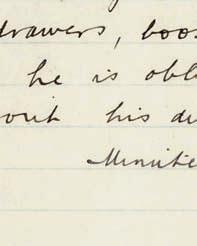 drawers, boo
he is obl
out his d
Minute